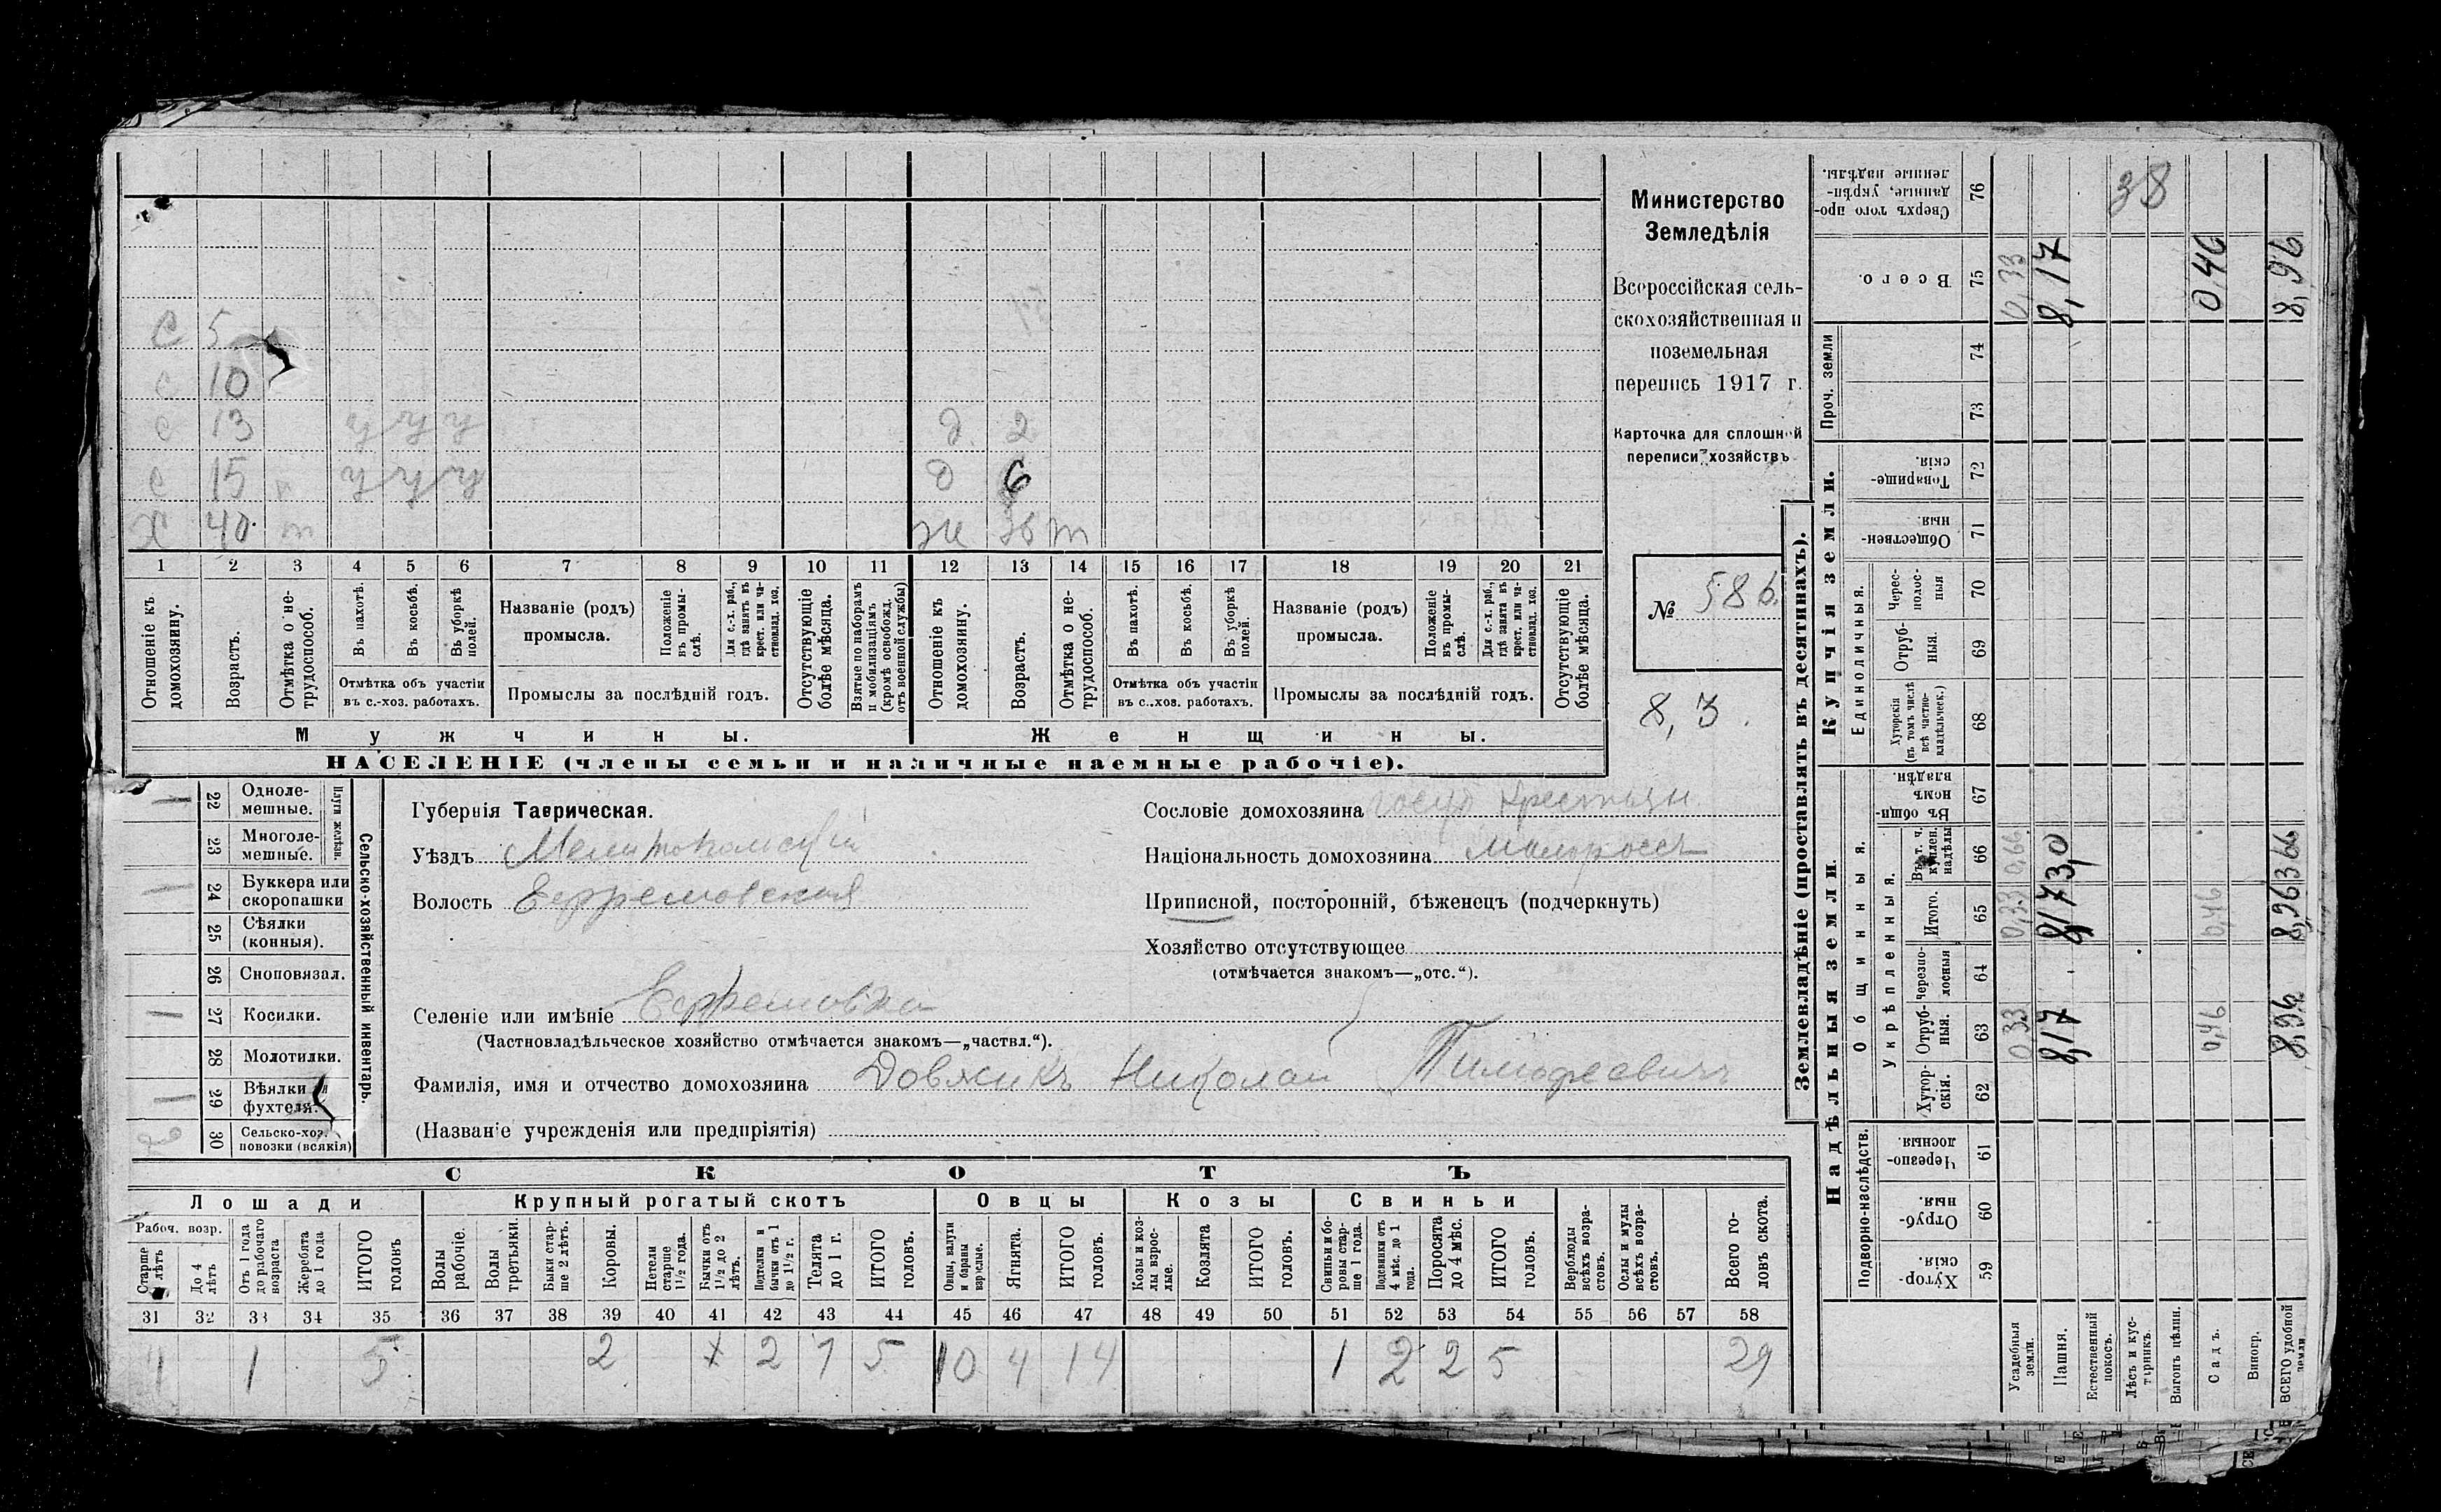 Министерство
Земледѣлія
Всероссійская сель-
скохозяйственная и
поземельная
перепись 1917 г.
Карточка для сплошной
переписи хозяйствъ
№ 586.
8,3.
С 5
с 10
с 13 у у у
д. 2
с 15 у у у
д 6
Х 40 ж 36 т
1 2 3 4 5 6 7 8 9 10 11 12 13 14 15 16 17 18 19 20 21
Отношеніе къ домохозяину.
Возрастъ.
Отмѣтка о не-трудоспособ.
Въ пахотѣ.
Въ косьбѣ.
Въ уборкѣ полей.
Отмѣтка объ участіи
въ с.-хоз. работахъ.
Названіе (родъ)
промысла.
Положеніе въ промы-слѣ.
Для с.-х. раб., гдѣ занятъ въ крест. или ча-стновлад. хоз.
Промыслы за послѣдній годъ.
Отсутствующіе болѣе мѣсяца.
Взятые по наборамъ и мобилизаціямъ (кромѣ освобожд. отъ военной службы)
Отношеніе къ домохозяину.
Возрастъ.
Отмѣтка о не-трудоспособ.
Въ пахотѣ.
Въ косьбѣ.
Въ уборкѣ полей.
Отмѣтка объ участіи
въ с.-хоз. работахъ.
Названіе (родъ)
промысла.
Положеніе въ промы-слѣ.
Для с.-х. раб., гдѣ занята въ крест. или ча-стновлад. хоз.
Промыслы за послѣдній годъ.
Отсутствующіе болѣе мѣсяца.
Мужчины.
Женщины.
НАСЕЛЕНІЕ (члены семьи и наличные наемные рабочіе).
Сельско-хозяйственный инвентарь.
Плуги желѣзн.
1 22 Одноле-мешные.
23 Многоле-мешные.
1 24 Буккера или скоропашки
25 Сѣялки (конныя).
26 Сноповязал.
1 27 Косилки.
28 Молотилки.
1 29 Вѣялки и фухтеля.
2 30 Сельско-хоз. повозки (всякія)
Губернія Таврическая.
Уѣздъ Мелитопольскій
Волость Ефремовская
Селеніе или имѣніе Ефремовка
(Частновладѣльческое хозяйство отмѣчается знакомъ—„частвл.“).
Фамилія, имя и отчество домохозяина Довжикъ Николай Тимофеевичъ
(Названіе учрежденія или предпріятія)
Сословіе домохозяина госуд крестьян
Національность домохозяина малороссъ
Приписной, посторонній, бѣженецъ (подчеркнуть)
Хозяйство отсутствующее
(отмѣчается знакомъ—„отс.“).
СКОТЪ
Лошади
Крупный рогатый скотъ
Овцы
Козы
Свиньи
Рабоч. возр.
Старше 4 лѣтъ
До 4 лѣтъ
Отъ 1 года до рабочаго возраста
Жеребята до 1 года
ИТОГО головъ
Волы рабочіе.
Волы третьяки.
Быки стар-ше 2 лѣтъ.
Коровы.
Нетели старше 1½ года.
Бычки отъ 1½ до 2 лѣтъ.
Подтелки и бычки отъ 1 до 1½ г.
Телята до 1 г.
ИТОГО головъ.
Овцы, валухи и бараны взрослые.
Ягнята.
ИТОГО головъ.
Козы и коз-лы взрос-лые.
Козлята
ИТОГО головъ.
Свиньи и бо-ровы стар-ше 1 года.
Подсвинки отъ 4 мѣс. до 1 года.
Поросята до 4 мѣс.
ИТОГО головъ.
Верблюды всѣхъ возра-стовъ.
Ослы и мулы всѣхъ возра-стовъ.
Всего го-ловъ скота.
31 32 33 34 35 36 37 38 39 40 41 42 43 44 45 46 47 48 49 50 51 52 53 54 55 56 57 58
4 1 5 2 х 2 1 5 10 4 14 1 2 2 5 29
Землевладѣніе (проставлять въ десятинахъ).
Надѣльныя земли.
Купчія земли.
Проч. земли
Подворно-наслѣдств.
Общинныя.
Укрѣпленныя.
Единоличныя.
Хутор-скія. 59
Отруб-ныя. 60
Черезпо-лосныя 61
Хутор-скія. 62
Отруб-ныя. 63
Черезпо-лосныя 64
Итого. 65
Въ т. ч. куплен. надѣлы 66
Въ общи-номъ владѣн. 67
Хуторскія (въ томъ числѣ всѣ частно-владѣльческ.) 68
Отруб-ныя. 69
Черес-полос-ныя 70
Обществен-ныя. 71
Товарище-скія. 72
73
74
Всего. 75
Сверхъ того про-данные, укрѣп-ленные надѣлы. 76
Усадебныя земли. 0,33 0,33 0,66 0,33
Пашня. 8,17 8,17 3,0 8,17
Естественный покосъ.
Лѣсъ и кус-тарникъ. 38
Выгонъ цѣлин.
Садъ. 0,46 0,46 0,46
Виногр.
ВСЕГО удобной земли 8,96 8,96 3,66 8,96